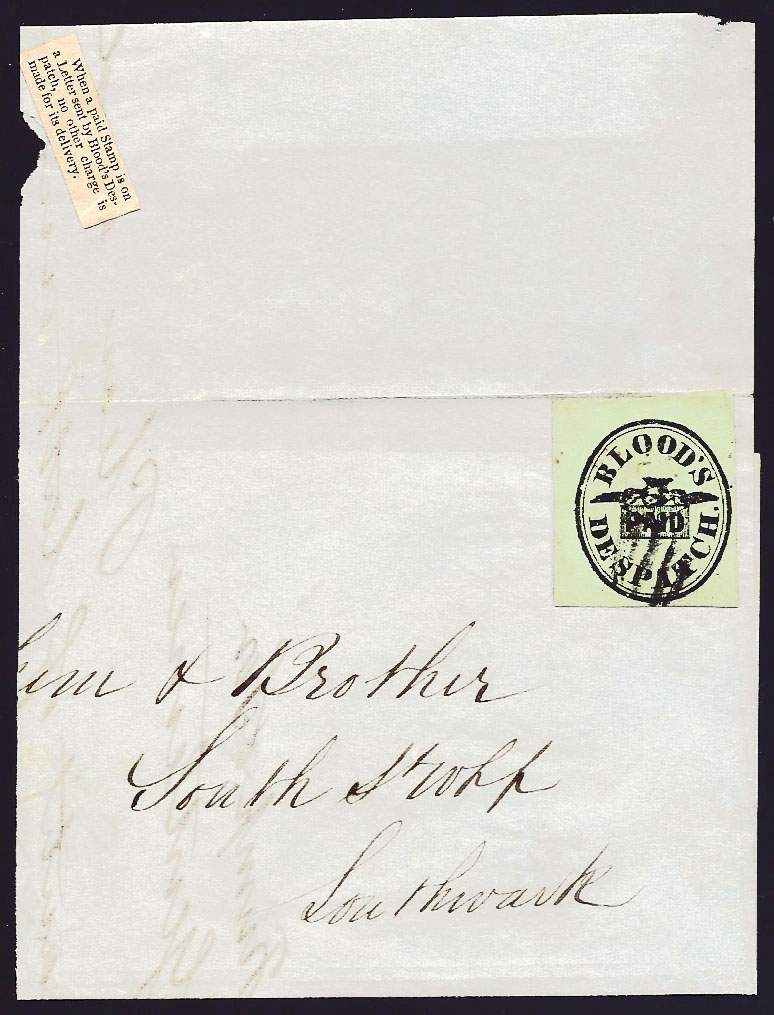 When a paid Stamp is on
a Letter sent by Blood's Des-
patch, no other charge is
made for its delivery.
BLOOD'S
PAID
DESPATCH.
& Brother
South St
Southwark